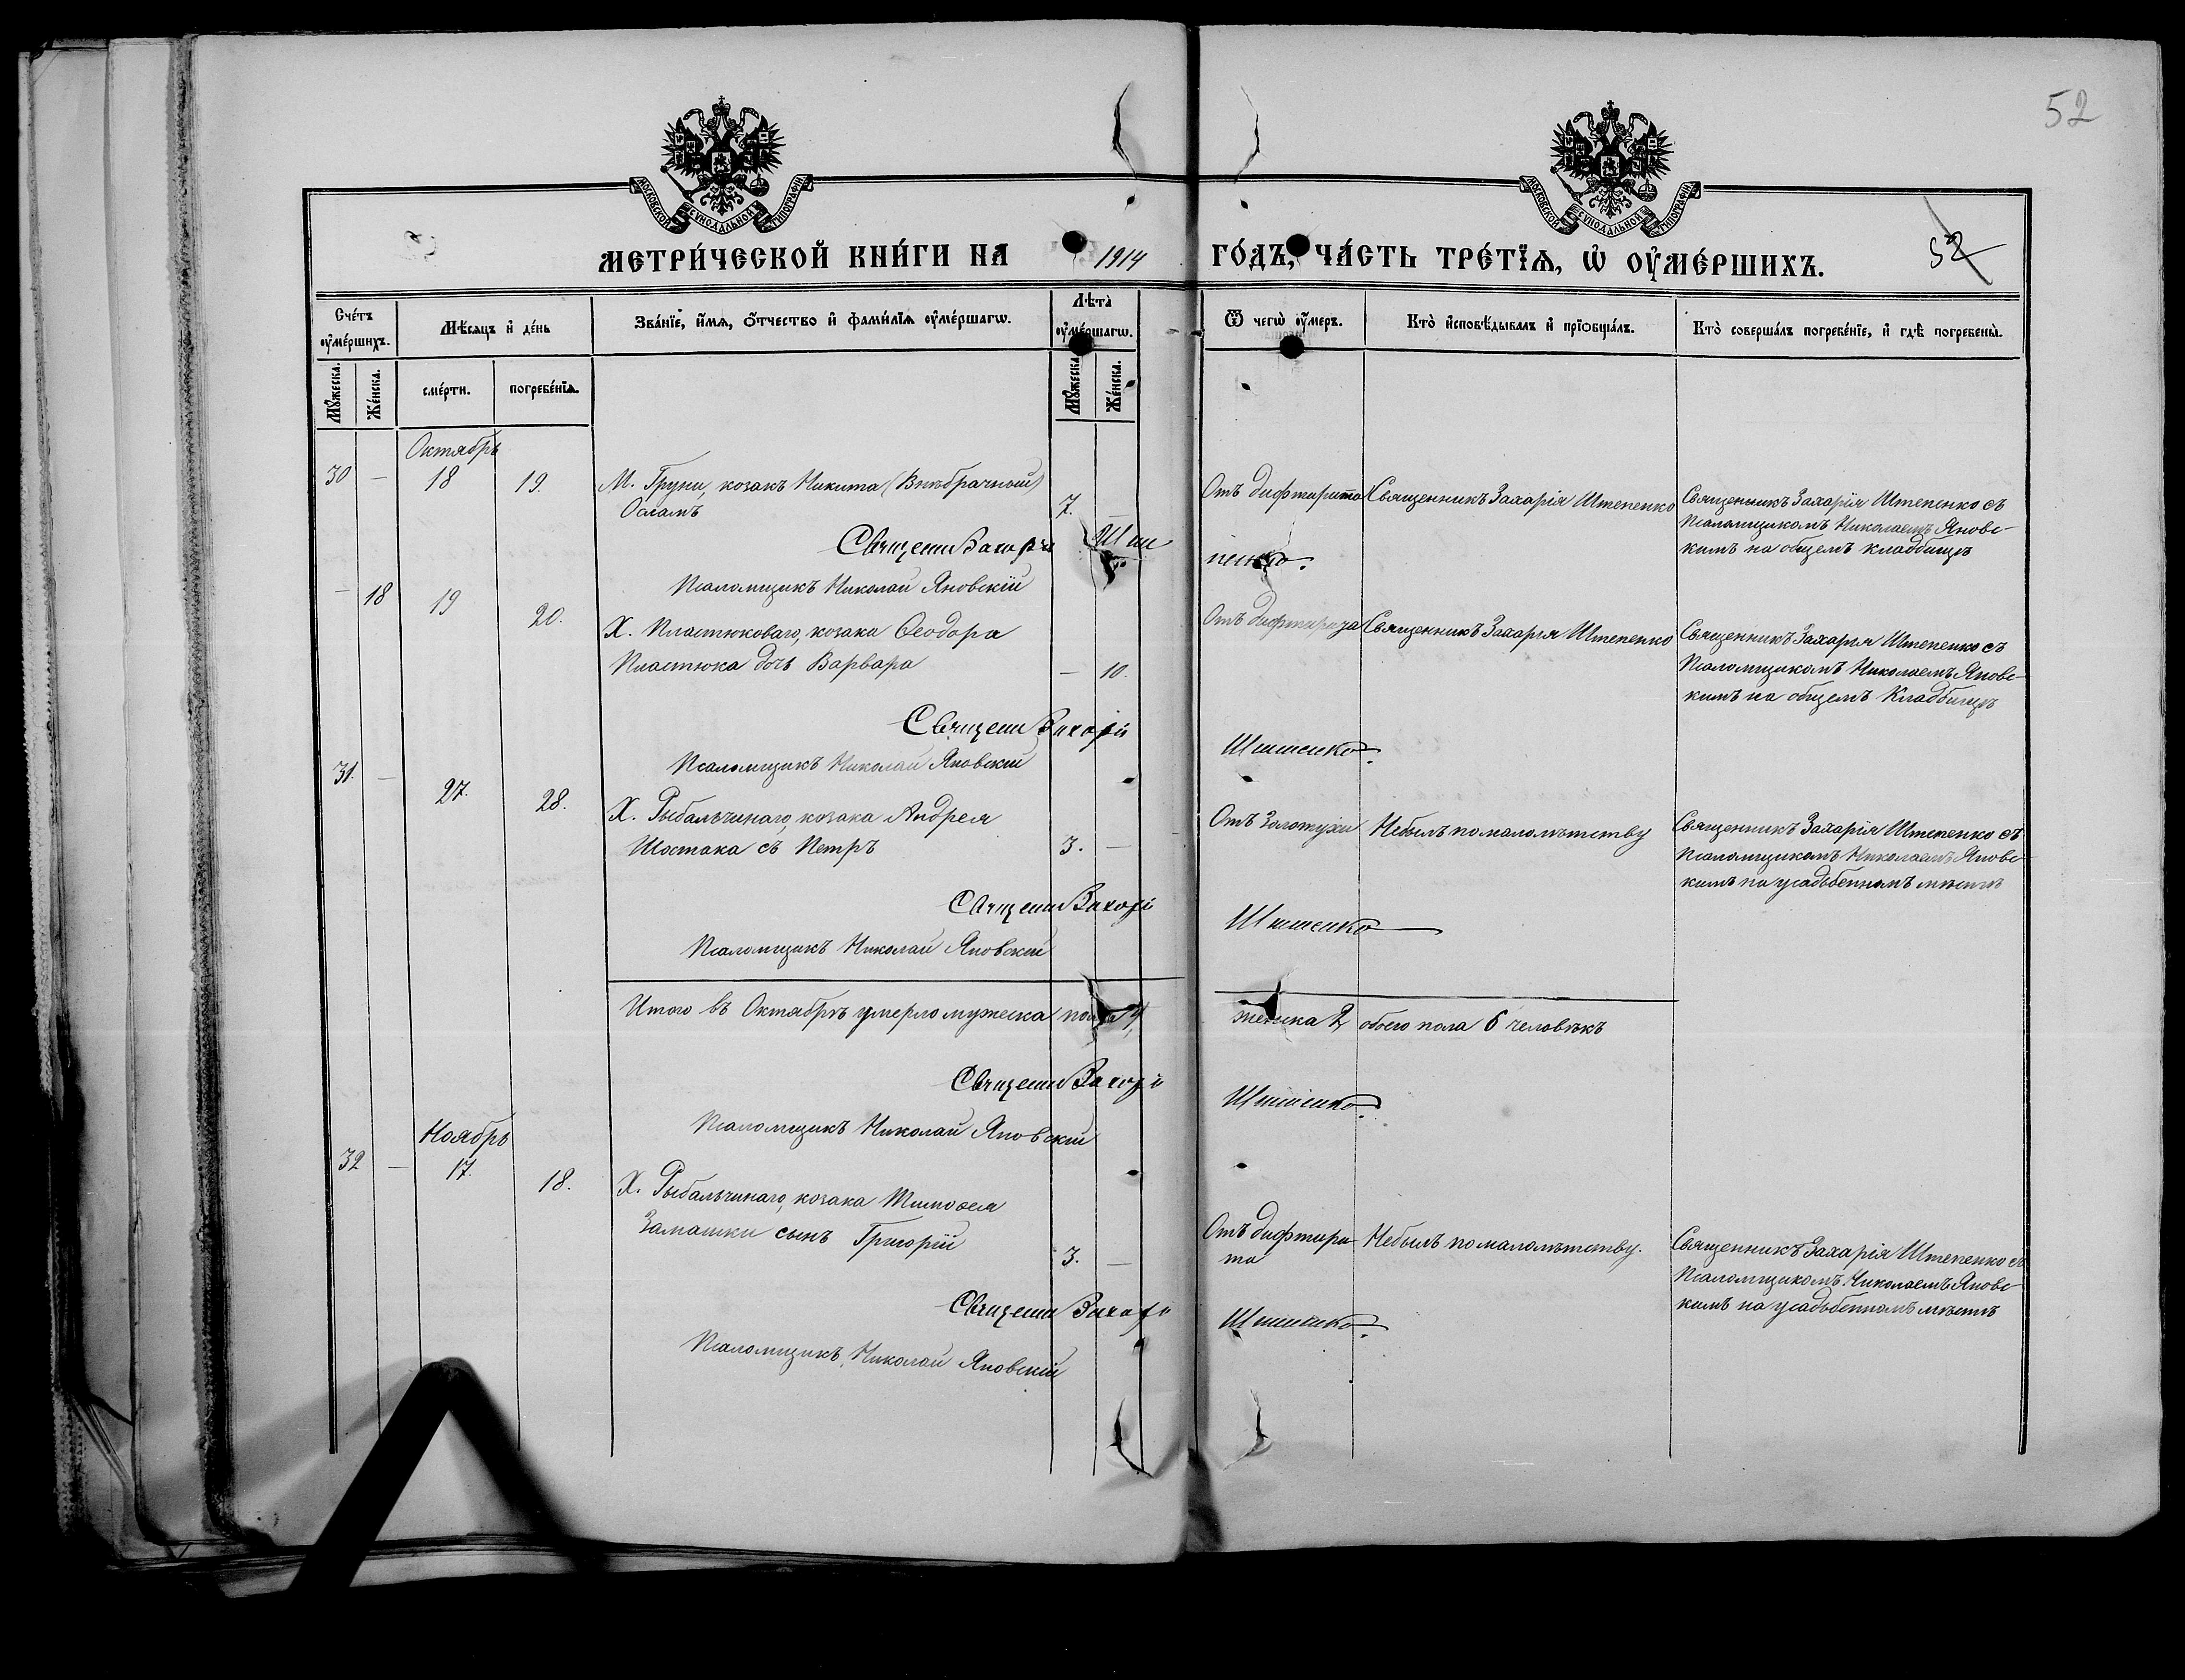 52
МОСКОВСКОЙ СУНОДАЛЬНОЙ ТИПОГРАФІИ
МОСКОВСКОЙ СУНОДАЛЬНОЙ ТИПОГРАФІИ
МЕТРИ́ЧЕСКОЙ КНИ́ГИ НА 1914 ГО́ДЪ, ЧА́СТЬ ТРЕ́ТЇѦ, Ѡ ОУ҆МЕ́РШИХЪ.
52
Счетъ оумершихъ.
Мѣсяцъ и день
Званїе, имя, отчество и фамилїя оумершагѡ.
Лѣта оумершагѡ.
Ѿ чегѡ оумеръ.
Кто исповѣдывалъ и прїобщалъ.
Кто совершалъ погребенїе, и гдѣ погребены.
Мужеска.
Женска.
смерти.
погребенїя.
Мужеска.
Женска.
Октябрь
30 — 18 19. М. Груни, козакъ Никита (Внѣбрачный) 7. — Отъ дифтирита Священникъ Захарія Штепенко Священникъ Захарія Штепенко съ
Псаломщикомъ Николаемъ Яновс-
кимъ на общемъ кладбищѣ
Священ Захарія Штепенко.
Псаломщикъ Николай Яновскій
— 18 19 20. Х. Пластюковаго, козака Ѳеодора
Пластюка дочь Варвара — 10. Священникъ Захарія Штепенко Священникъ Захарія Штепенко съ
Псаломщикомъ Николаемъ Яновс-
кимъ на общемъ Кладбищѣ
Священ Захарія Штепенко.
Псаломщикъ Николай Яновскій
31. — 27. 28. Х. Рыбальчинаго, козака Андрея
Шостака съ Петръ 3. — Отъ Золотухи Небылъ по малолѣтству Священникъ Захарія Штепенко съ
Псаломщикомъ Николаемъ Яновс-
кимъ на усадьбенномъ мѣстѣ
Священ Захарія Штепенко
Псаломщикъ Николай Яновскій
Итого въ Октябрѣ умерло мужеска пола 4, женска 2, обоего пола 6 человѣкъ
Священ Захарія Штепенко.
Псаломщикъ Николай Яновскій
Ноябрь
32 — 17. 18. Х. Рыбальчинаго, козака Тимоѳея
Замашки сынъ Григорій 3. — Отъ дифтири-
та Небылъ по малолѣтству. Священникъ Захарія Штепенко съ
Псаломщикомъ Николаемъ Яновс-
кимъ на усадьбенномъ мѣстѣ
Священ Захарія Штепенко.
Псаломщикъ Николай Яновскій